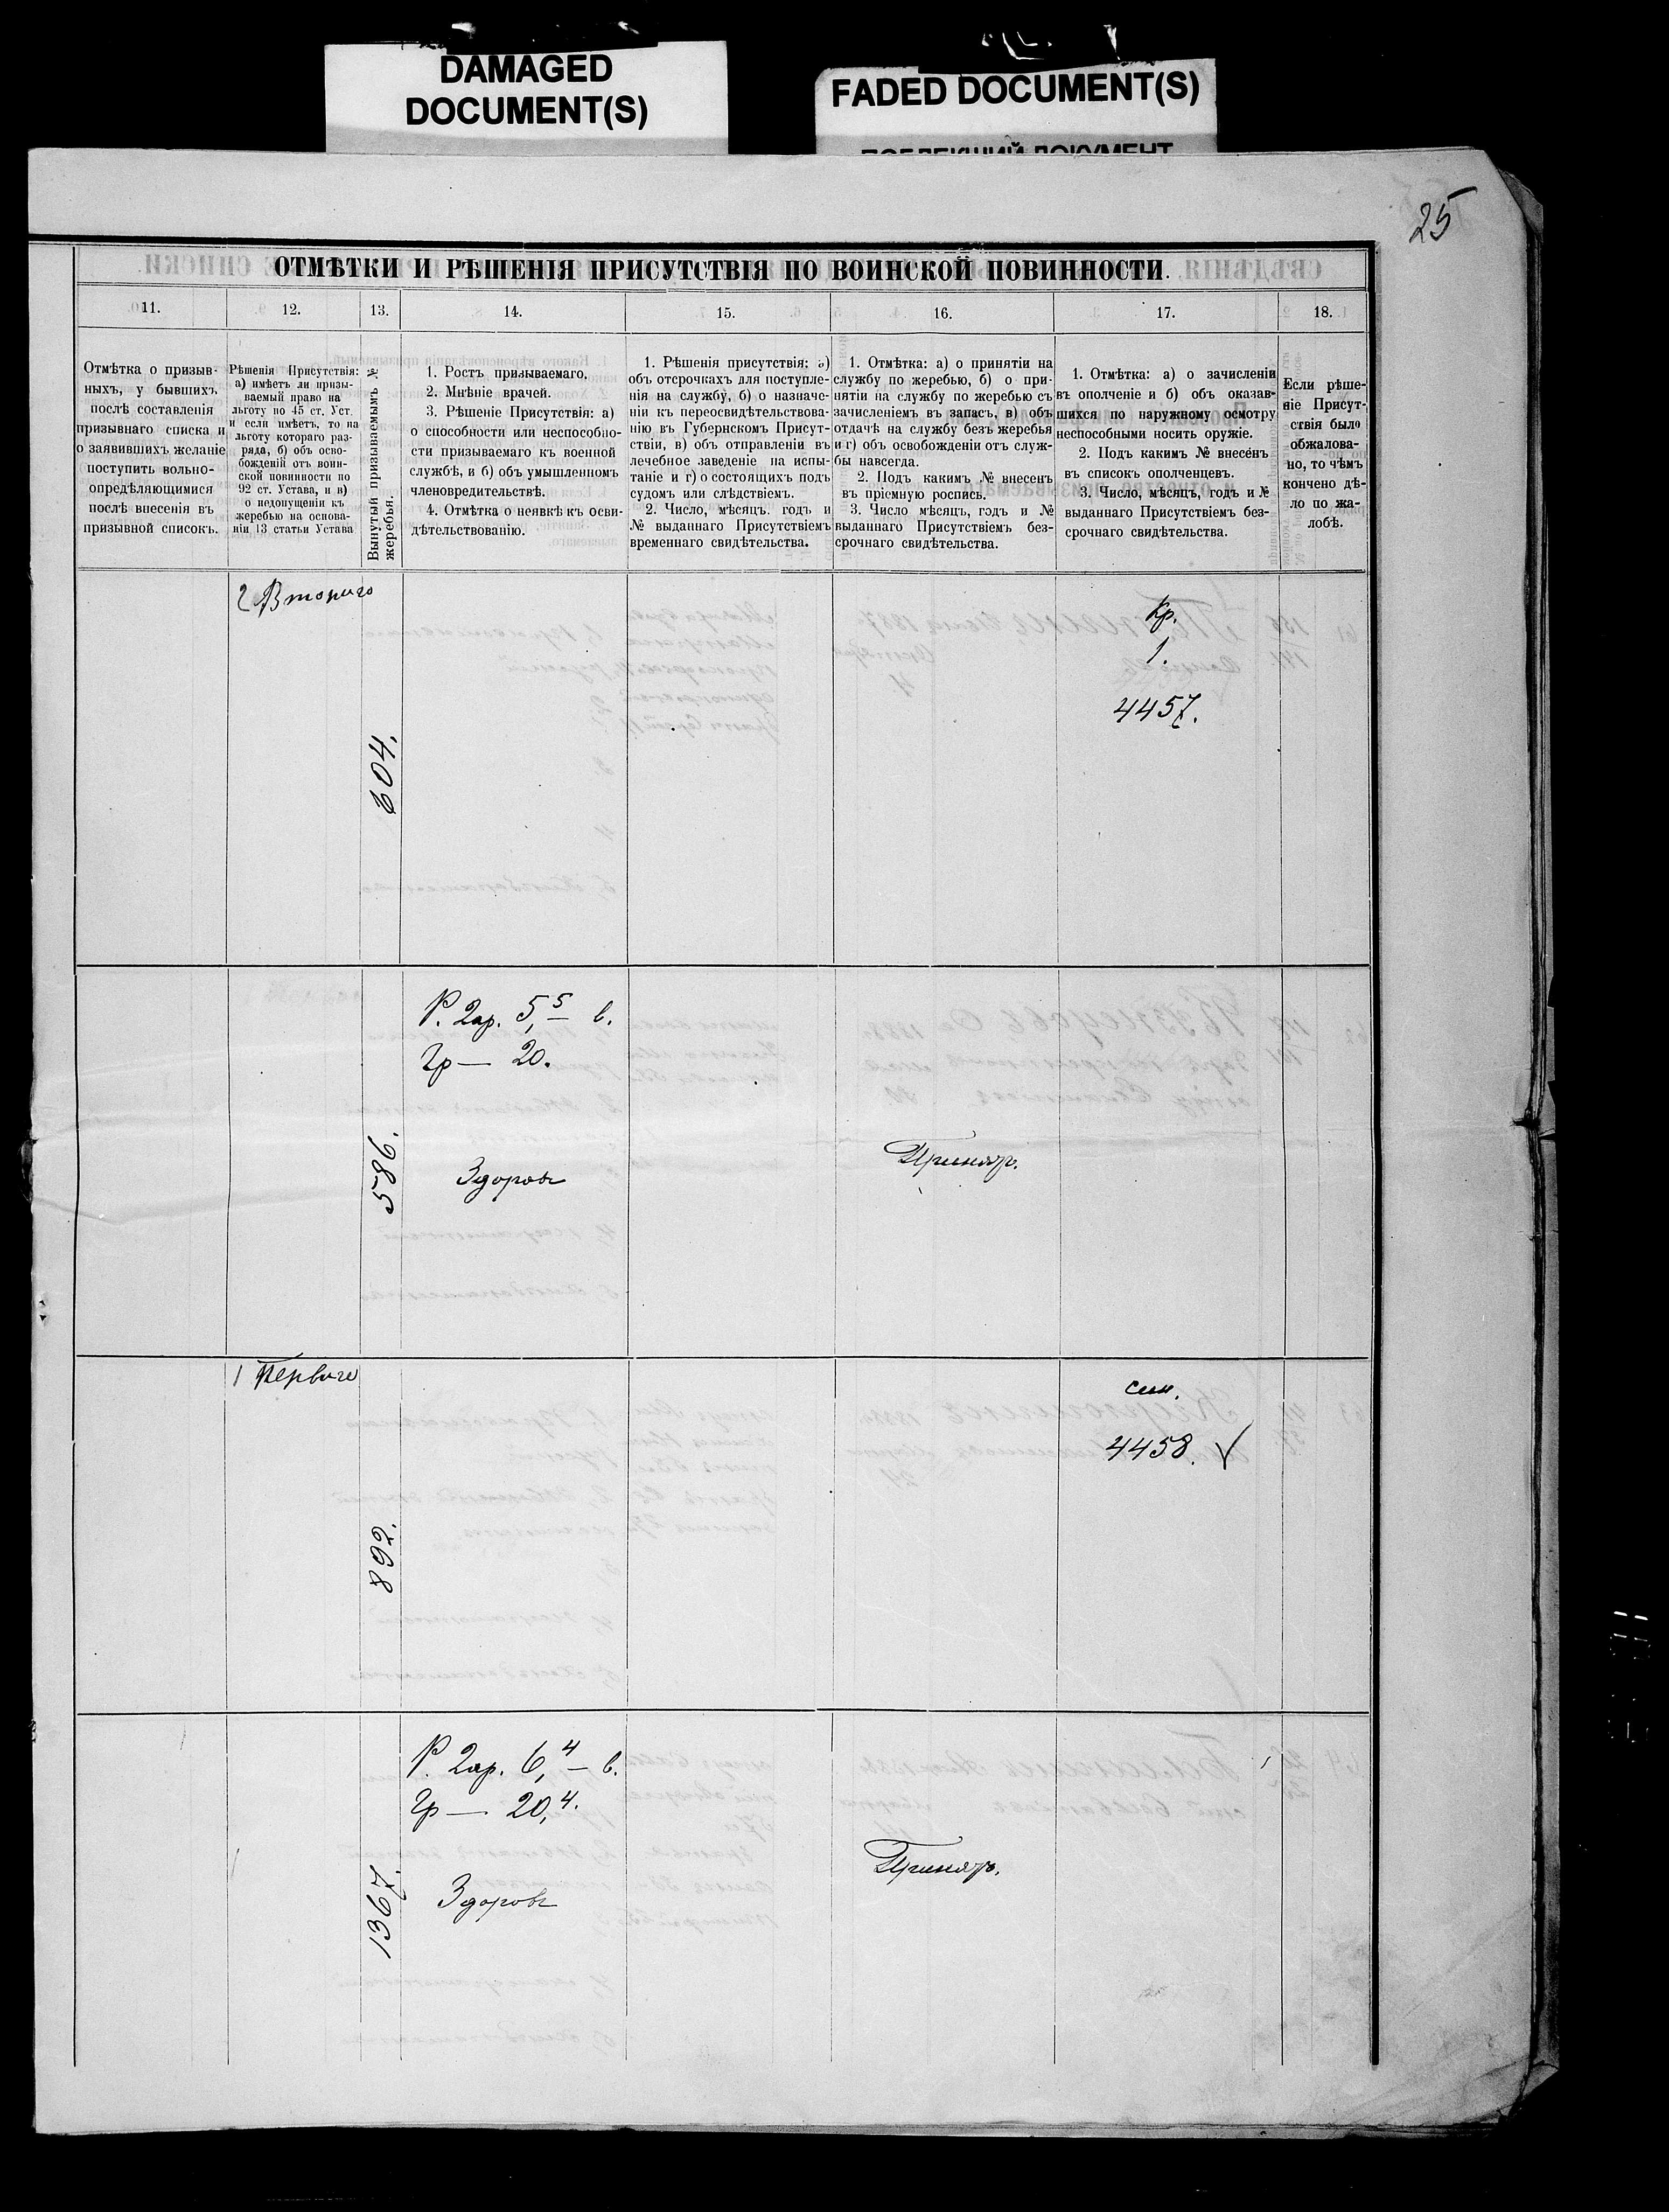 DAMAGED
DOCUMENT(S)
FADED DOCUMENT(S)
25
ОТМѢТКИ И РѢШЕНІЯ ПРИСУТСТВІЯ ПО ВОИНСКОЙ ПОВИННОСТИ.
11. 12. 13. 14. 15. 16. 17. 18.
Отмѣтка о призыв-
ныхъ, у бывшихъ
послѣ составленія
призывнаго списка и
о заявившихъ желаніе
поступить вольно-
опредѣляющимися
послѣ внесенія въ
призывной списокъ.
Рѣшенія Присутствія:
а) имѣетъ ли призы-
ваемый право на
льготу по 45 ст. Уст.
и если имѣетъ, то на
льготу котораго раз-
ряда, б) объ осво-
божденій отъ воин-
ской повинности по
92 ст. Устава, и в)
о недопущеніи къ
жеребью на основа-
ніи 13 статьи Устава
Вынутый призываемымъ №
жеребья.
1. Ростъ призываемаго.
2. Мнѣніе врачей.
3. Рѣшеніе Присутствія: а)
о способности или неспособно-
сти призываемаго къ военной
службѣ, и б) объ умышленномъ
членовредительствѣ.
4. Отмѣтка о неявкѣ къ осви-
дѣтельствованію.
1. Рѣшенія присутствія: а)
объ отсрочкахъ для поступле-
нія на службу, б) о назначе-
ніи къ переосвидѣтельствова-
нію въ Губернскомъ Присут-
ствіи, в) объ отправленіи въ
лечебное заведеніе на испы-
таніе и г) о состоящихъ подъ
судомъ или слѣдствіемъ.
2. Число, мѣсяцъ. годъ и
№ выданнаго Присутствіемъ
временнаго свидѣтельства.
1. Отмѣтка: а) о принятіи на
службу по жеребью, б) о при-
нятіи на службу по жеребью съ
зачисленіемъ въ запасъ, в) объ
отдачѣ на службу безъ жеребья
и г) объ освобожденіи отъ служ-
бы навсегда.
2. Подъ какимъ № внесенъ
въ пріемную роспись.
3. Число мѣсяцъ, годъ и №
выданнаго Присутствіемъ без-
срочнаго свидѣтельства.
1. Отмѣтка: а) о зачисленіи
въ ополченіе и б) объ оказав-
шихся по наружному осмотру
неспособными носить оружіе.
2. Подъ какимъ № внесенъ
въ списокъ ополченцевъ.
3. Число, мѣсяцъ, годъ и №
выданнаго Присутствіемъ без-
срочнаго свидѣтельства.
Если рѣше-
ніе Присут-
ствія было
обжалова-
но, то чѣмъ
кончено дѣ-
ло по жа-
лобѣ.
2 Втораго
604.
Кр.
1.
4457.
586.
Р. 2ар. 5,5 — в.
Гр — 20.
Здоровъ
Принятъ.
1 Перваго
892.
сын.
4458. √
1367.
Р. 2ар. 6,4 — в.
Гр — 20,4.
Здоровъ
Принятъ.